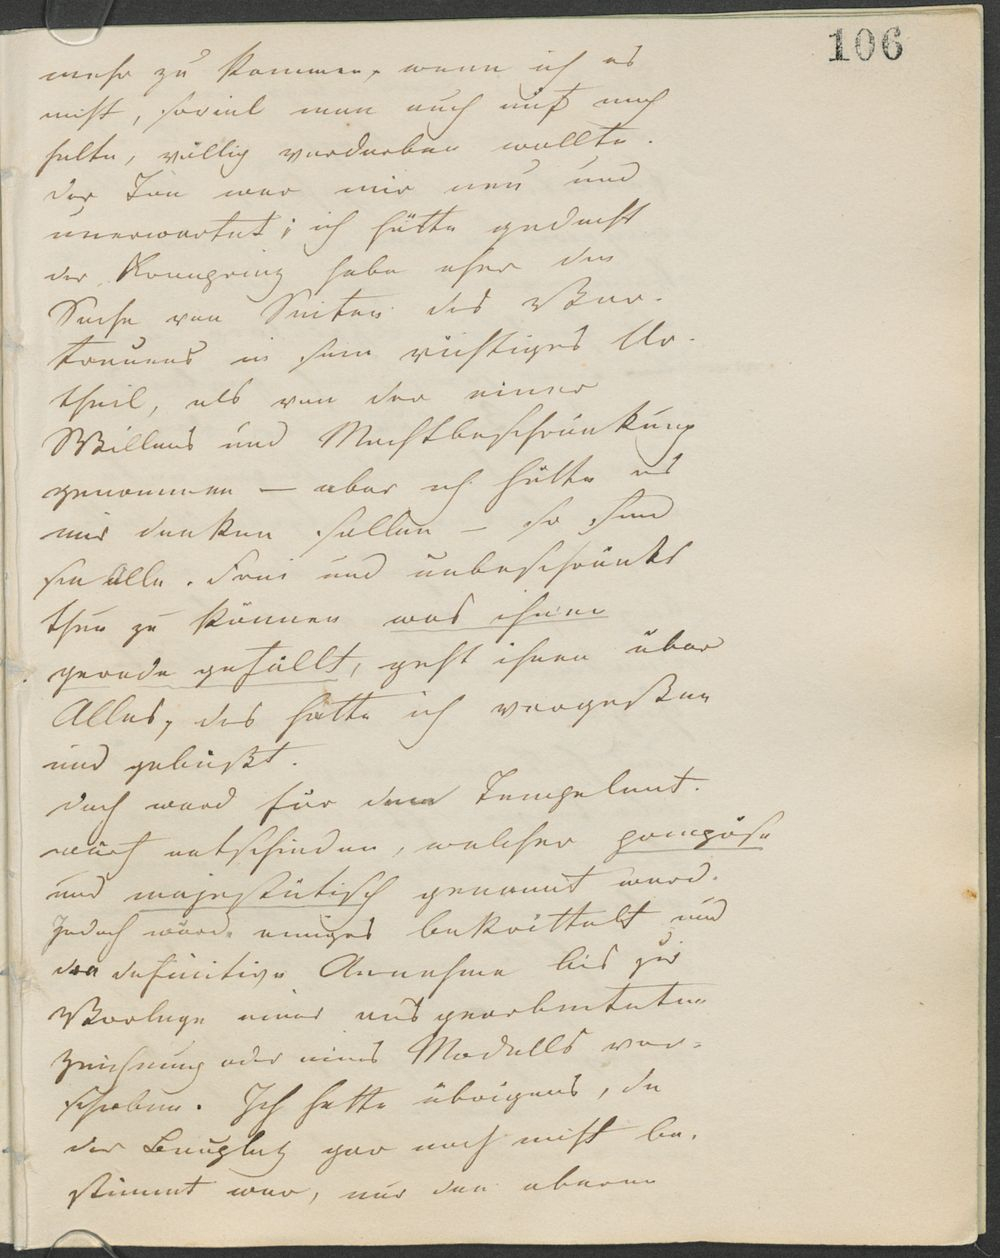 106
mehr zu kommen, wenn ich es
nicht, soviel man auch auf mich
halte, völlig verderben wollte.
Der Ton war mir neu und
unerwartet; ich hätte gedacht
der Kronprinz habe eher die
Sache von Seiten des Ver-
trauens in sein richtiges Ur-
theil, als von der einer
Willens und Machtbeschränkung
genommen — aber ich hätte es
mir denken sollen — so sind
sie alle. Frei und unbeschränkt
thun zu können was ihnen
gerade gefällt, geht ihnen über
Alles, das hatte ich vergeßen
und gebüßt.
Doch ward für den Tempelent-
wurf entschieden, welcher pompös
und majestätisch genannt ward.
Jedoch wurde einiges bekrittelt und
die definitive Annahme bis zur
Vorlage einer ausgearbeiteten
Zeichnung oder eines Modells ver-
schoben. Ich hatte übrigens, da
der Bauplatz gar noch nicht be-
stimmt war, nur den oberen